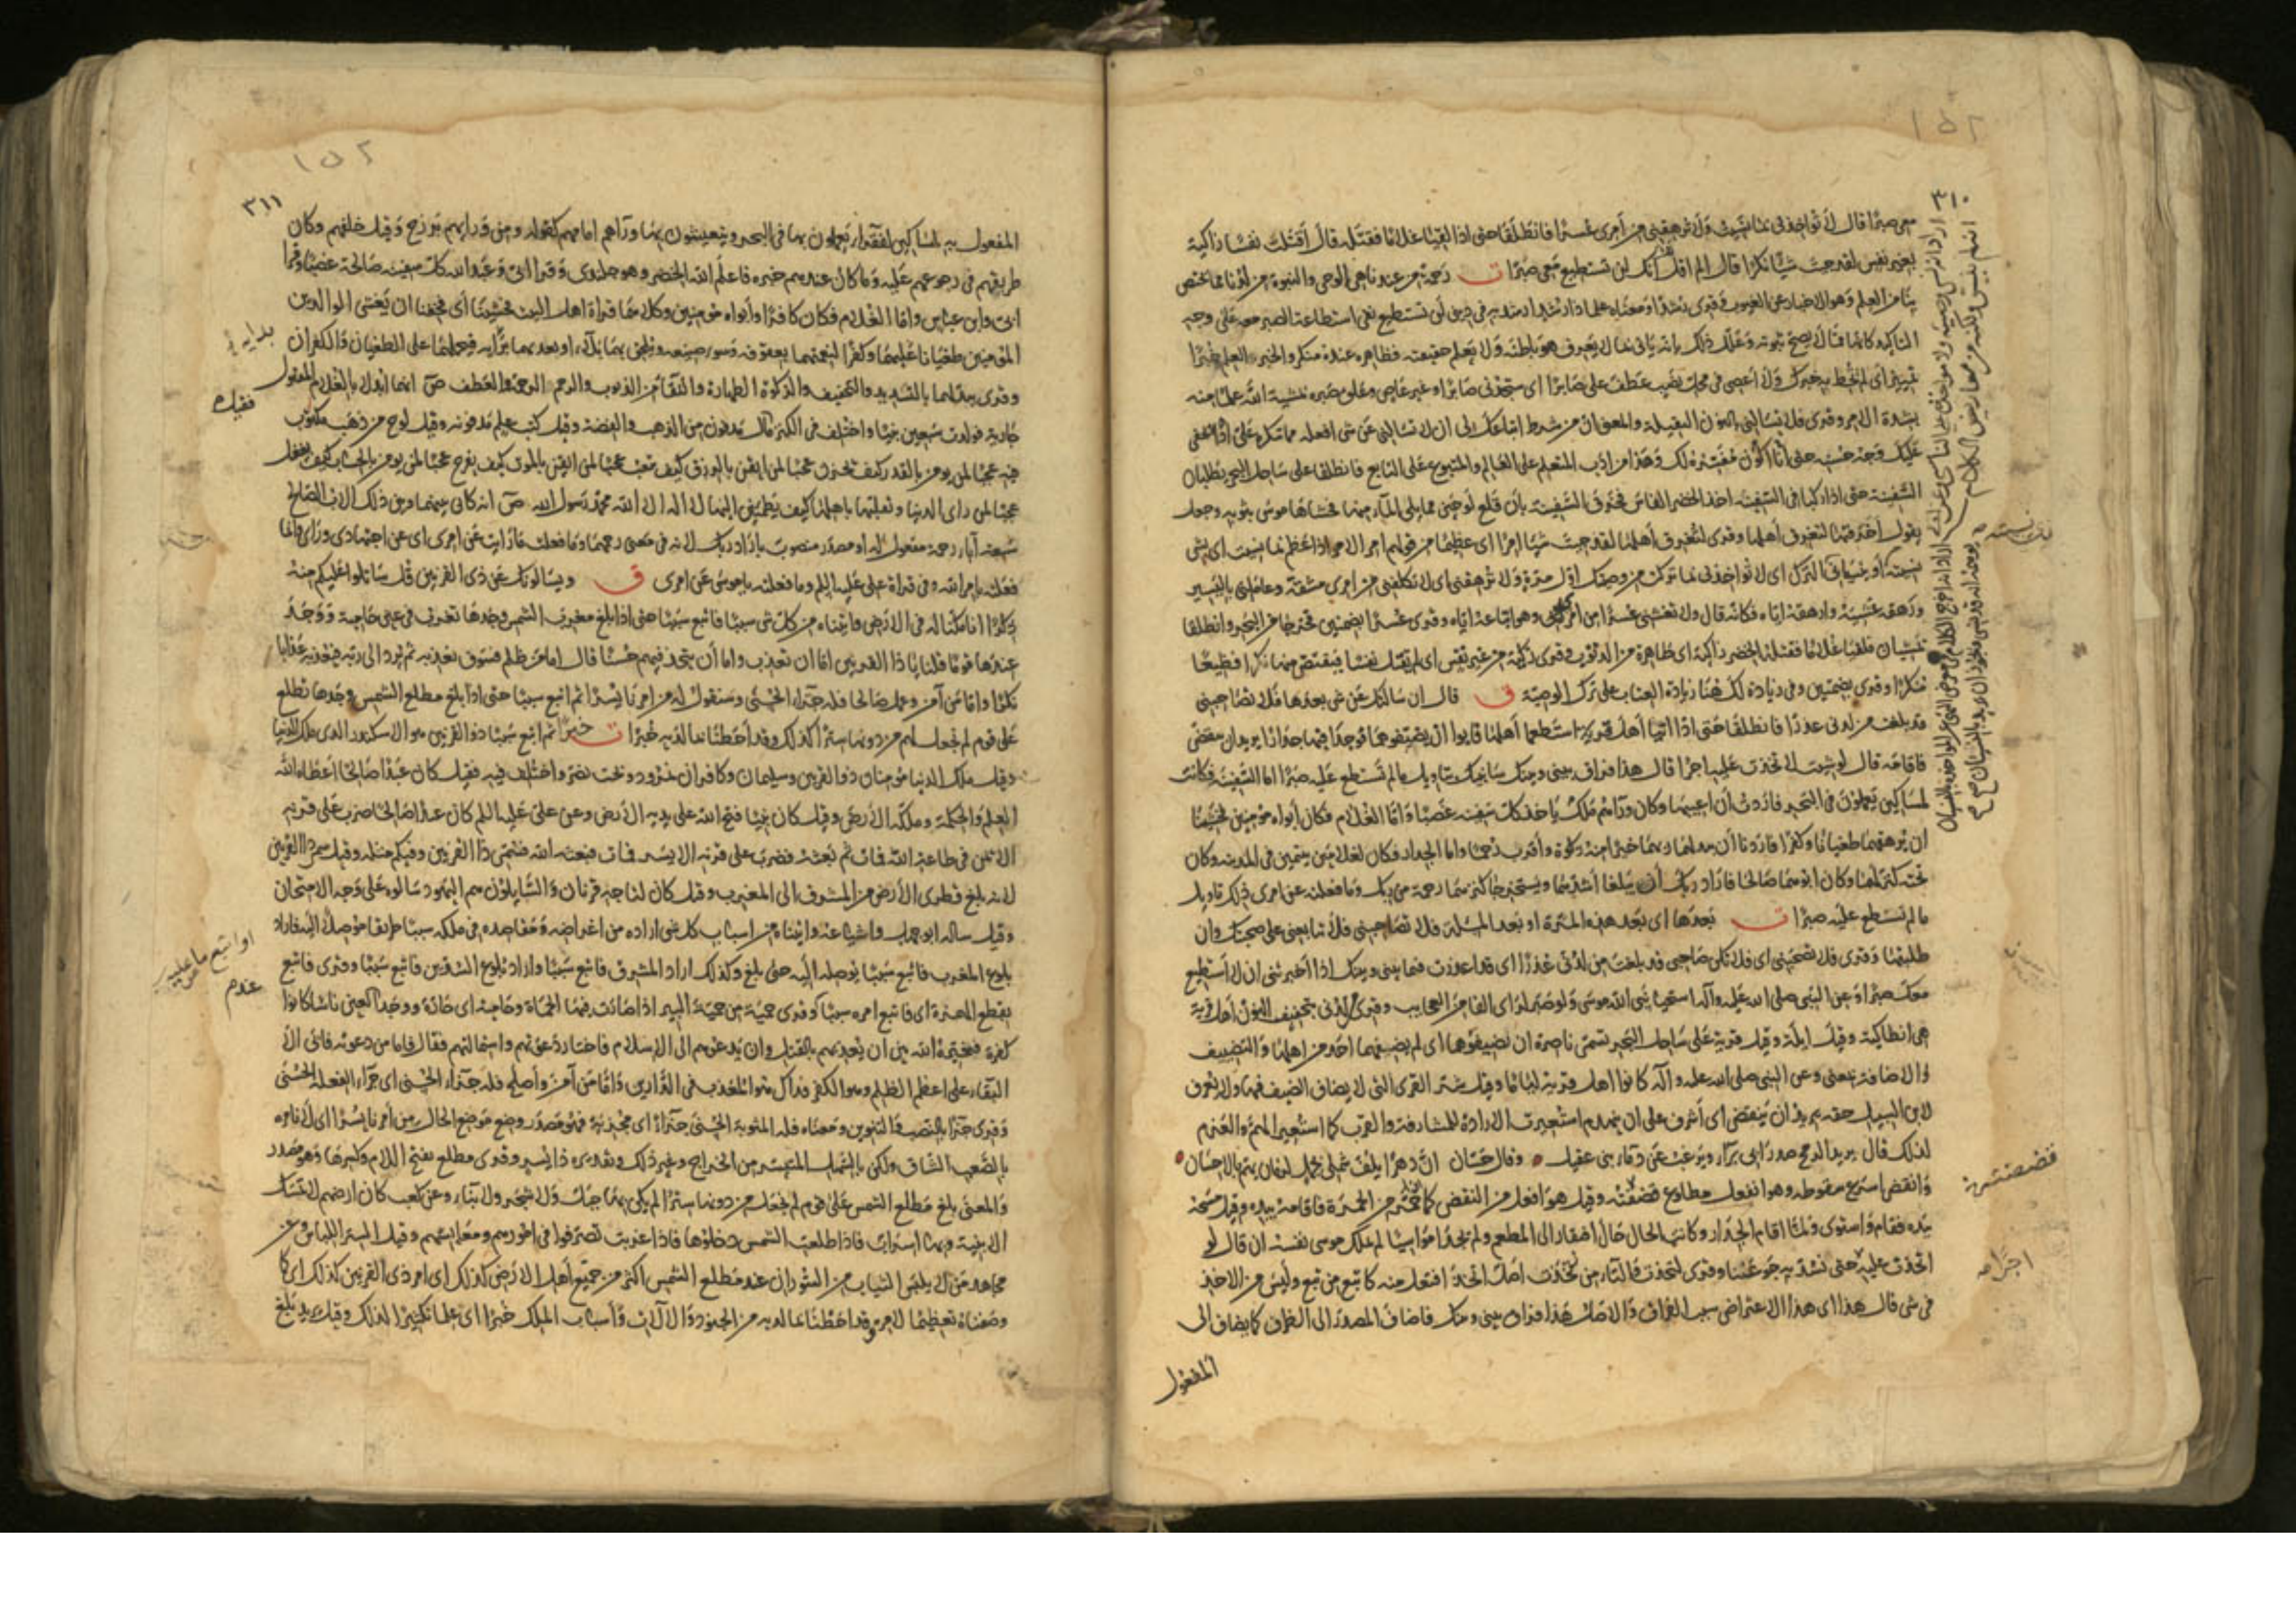 ٣١٠
معى صبرا قال لا تؤاخذنى بما نسيت ولا ترهقنى من امرى عسرا فانطلقا حتى اذا لقيا غلاما فقتله قال اقتلت نفسا زاكية
بغير نفس لقد جئت شيئا نكرا قال الم اقل لك انك لن تستطيع معى صبرا ت رحمة من عندنا هى الوحى والنبوة من لدنا مما يختص
بنا من العلم وهو الاخبار عن الغيوب وقرى رشدا ومعناه علما ذا رشد نفى استطاعة الصبر معه على وجه
التاكيد كانها مما لا يصح ثبوته وعلل ذلك بانه يأتى بما لا يعرف هو باطنه ولا يعلم حقيقته فظاهره عنده منكر والخبر العلم خبرا
تمييز اى لم تحط به خبرك ولا اعصى فى محل نصب عطف على صابرا اى ستجدنى صابرا وغير عاص وعلق صبره بمشية الله علما منه
بشدة الامر وقرى فلا تسألنى بالنون الثقيلة والمعنى ان من شرط اتباعك لى ان لا تسألنى عن شى افعله مما تنكره على اذا خفى
عليك وجه حسنه حتى انا اكون مفسره لك وهذا من ادب المتعلم على العالم والمتبوع على التابع فانطلقا على ساحل البحر يطلبان
السفينة حتى اذا ركبا فى السفينة اخذ الخضر الفاس فخرق السفينة بان قلع لوحين مما يلى الماء فحشاها موسى بثوبه وجعل
يقول اخرقتها لتغرق اهلها وقرى لتغرق اهلها لقد جئت شيئا امرا اى عظيما من قولهم امر الامر اذا عظم بما نسيت اى بشى
نسيته او بنسيانى اى لا تؤاخذنى بما تركت من وصيتك اول مرة ولا ترهقنى اى لا تكلفنى من امرى مشقة وعاملنى باليسير
ورهقه غشيه وارهقه اياه فكانه قال ولا تغشنى عسرا من امرى وهو اتباعه اياه وقرى عسرا بضمتين فخرجا من البحر وانطلقا
يمشيان فلقيا غلاما فقتله الخضر زاكية اى طاهرة من الذنوب وقرى زكية من غير نفس اى لم تقتل نفسا فيقتص منها نكرا فظيعا
منكرا وقرى بضمتين وفى زيادة لك هنا زيادة العتاب على ترك الوصية ق قال ان سالتك عن شى بعدها فلا تصاحبنى
قد بلغت من لدنى عذرا فانطلقا حتى اذا اتيا اهل قرية استطعما اهلها فابوا ان يضيفوهما فوجدا فيها جدارا يريد ان ينقض
فاقامه قال لو شئت لاتخذت عليه اجرا قال هذا فراق بينى وبينك سانبئك بتاويل ما لم تستطع عليه صبرا اما السفينة فكانت
لمساكين يعملون فى البحر فاردت ان اعيبها وكان وراءهم ملك ياخذ كل سفينة غصبا واما الغلام فكان ابواه مؤمنين فخشينا
ان يرهقهما طغيانا وكفرا فاردنا ان يبدلهما ربهما خيرا منه زكوة واقرب رحما واما الجدار فكان لغلامين يتيمين فى المدينة وكان
تحته كنز لهما وكان ابوهما صالحا فاراد ربك ان يبلغا اشدهما ويستخرجا كنزهما رحمة من ربك وما فعلته عن امرى ذلك تاويل
ما لم تسطع عليه صبرا ت بعدها اى بعد هذه المرة او بعد المسئلة فلا تصاحبنى فلا تتابعنى على صحبتك وان
طلبتها وقرى فلا تصحبنى اى فلا تكن صاحبى قد بلغت من لدنى عذرا اى قد اعذرت فيما بينى وبينك اذا اخبرتنى ان لا استطيع
معك صبرا وعن النبى صلى الله عليه وآله استحيا نبى الله موسى ولو صبر لراى الفا من العجايب وقرى لدنى بتخفيف النون اهل قرية
هى انطاكية وقيل ايلة وقيل قرية على ساحل البحر تسمى ناصرة ان يضيفوهما اى لم يضيفهما احد من اهلها والتضييف
والاضافة بمعنى وعن النبى صلى الله عليه وآله كانوا اهل قرية لئاما وقيل شر القرى التى لا يضاف الضيف فيها ولا يعرف
لابن السبيل حقه يريد ان ينقض اى اشرف على ان ينهدم استعيرت الارادة للمشارفة والقرب كما استعير الهم والعزم
لذلك قال يريد الرمح صدر ابى براء ويرغب عن دماء بنى عقيل وقال حسان ان دهرا يلف شملى بجمل لزمان يهم بالاحسان
وانقض اسرع سقوطه وهو انفعل مطاوع قضضته وقيل هو افعل من النقض كاحمر من الحمرة فاقامه بيده وقيل مسحه
بيده فقام واستوى ولما اقام الجدار وكانت الحال حال افتقار الى المطعم ولم يجدا مواسيا لم يملك موسى نفسه ان قال لو
اتخذت عليه حتى نسد به جوعنا وقرى لتخذت فالتاء من تخذت اصل اتخذ افتعل منه كاتبع من تبع وليس من الاخذ
فى شى قال هذا اى هذا الاعتراض سبب الفراق والاصل هذا فراق بينى وبينك فاضاف المصدر الى الظرف كما يضاف الى
المفعول
اجرا صح
٣١١
المفعول به لمساكين لفقراء يعملون بها فى البحر ويتعيشون بها وراءهم امامهم كقوله ومن ورايهم برزخ وقيل خلفهم وكان
طريقهم فى رجوعهم عليه وما كان عندهم خبره فاعلم الله الخضر وهو جلندى وقرا ابى وعبد الله كل سفينة صالحة غصبا وقرا
ابى وابن عباس واما الغلام فكان كافرا وابواه مؤمنين وكلاهما قراة اهل البيت فخشينا اى فخفنا ان يغشى الوالدين
المؤمنين طغيانا عليهما وكفرا لنعمتهما بعقوقه وسوء صنيعه ويلحق بهما بلاء او يعديهما بدائه فيحملهما على الطغيان والكفران
وقرى يبدلهما بالتشديد والتخفيف والزكوة الطهارة والنقاء من الذنوب والرحم الرحمة والعطف ص انهما ابدلا بالغلام المقتول
جارية فولدت سبعين نبيا واختلف فى الكنز مال مدفون من الذهب والفضة وقيل كتب علم مدفونة وقيل لوح من ذهب مكتوب
فيه عجبا لمن يومن بالقدر كيف يحزن عجبا لمن ايقن بالرزق كيف يتعب عجبا لمن ايقن بالموت كيف يفرح عجبا لمن يومن بالحساب كيف يغفل
عجبا لمن راى الدنيا وتقلبها باهلها كيف يطمئن اليها لا اله الا الله محمد رسول الله ص انه كان بينهما وبين ذلك الاب الصالح
سبعة آباء رحمة مفعول له او مصدر منصوب باراد ربك لانه فى معنى رحمهما وما فعلت ما رايت عن امرى اى عن اجتهادى ورايى وانما
فعلته بامر الله وفى قراة على عليه السلم وما فعلته يا موسى عن امرى ق ويسالونك عن ذى القرنين قل ساتلوا عليكم منه
ذكرا انا مكنا له فى الارض واتيناه من كل شى سببا فاتبع سببا حتى اذا بلغ مغرب الشمس وجدها تغرب فى عين حامية ووجد
عندها قوما قلنا يا ذا القرنين اما ان تعذب واما ان تتخذ فيهم حسنا قال اما من ظلم فسوف نعذبه ثم يرد الى ربه فيعذبه عذابا
نكرا واما من آمن وعمل صالحا فله جزاء الحسنى وسنقول له من امرنا يسرا ثم اتبع سببا حتى اذا بلغ مطلع الشمس وجدها تطلع
على قوم لم نجعل لهم من دونها سترا كذلك وقد احطنا بما لديه خبرا ت ثم اتبع سببا ذو القرنين هو الاسكندر الذى ملك الدنيا
وقيل ملك الدنيا مؤمنان ذو القرنين وسليمان وكافران نمرود وبخت نصر واختلف فيه فقيل كان عبدا صالحا اعطاه الله
العلم والحكمة وملكه الارض وقيل كان نبيا فتح الله على يديه الارض وعن على عليه السلم كان عبدا صالحا ضرب على قرنه
الايمن فى طاعة الله فمات ثم بعثه فضرب على قرنه الايسر فمات فبعثه الله فسمى ذا القرنين وفيكم مثله وقيل سمى ذا القرنين
لانه بلغ قطرى الارض من المشرق الى المغرب وقيل كان لتاجه قرنان والسايلون هم اليهود سالوه على وجه الامتحان
وقيل ساله ابو جهل واشياعه واتيناه من اسباب كل شى اراده من اغراضه ومقاصده فى ملكه سببا طريقا موصلا اليه فاراد
بلوغ المغرب فاتبع سببا يوصله اليه حتى بلغ وكذلك اراد المشرق فاتبع سببا واراد بلوغ السدين فاتبع سببا وقرى فاتبع
بقطع الهمزة اى فاتبع امره سببا وقرى حمئة من حمئت البئر اذا صارت فيها الحماة وحامية اى حارة ووجد ناسا كانوا
كفرة فخيره الله بين ان يعذبهم بالقتل وان يدعوهم الى الاسلام فاختار دعوتهم واستمالتهم فقال فاما من دعوته فابى الا
البقاء على اعظم الظلم وهو الكفر فذاك هو المعذب فى الدارين واما من آمن واصلح فله جزاء الحسنى اى جزاء الفعلة الحسنى
وقرى جزاء بالنصب والتنوين ومعناه فله المثوبة الحسنى جزاء اى مجزية فهو مصدر وضع موضع الحال من امرنا يسرا اى لا نامره
بالصعب الشاق ولكن بالسهل المتيسر من الخراج وغير ذلك وتقديره ذا يسر وقرى مطلع بفتح اللام وكسرها وهو مصدر
والمعنى بلغ مطلع الشمس على قوم لم نجعل من دونها سترا لم يكن بها جبل ولا شجر ولا بناء وعن كعب كان ارضهم لا تمسك
الابنية وبها اسراب فاذا طلعت الشمس دخلوها فاذا غربت تصرفوا فى امورهم ومعايشهم وقيل الستر اللباس وعن
مجاهد من لا يلبس الثياب من السودان عند مطلع الشمس اكثر من جميع اهل الارض كذلك اى امر ذى القرنين كذلك اى كما
وصفناه تعظيما لامره وقد احطنا بما لديه من الجنود والآلات واسباب الملك خبرا اى علما تكثيرا لذلك وقيل يريد بلغ